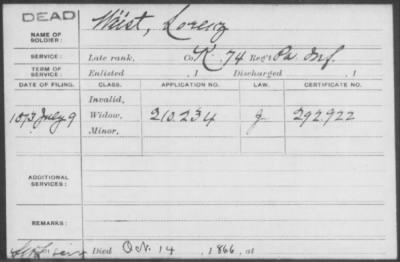 DEAD
NAME OF SOLDIER: Wüst, Lorenz
SERVICE: Late rank, Co. K, 74 Reg't Pa. Inf.
TERM OF SERVICE: Enlisted , 1 Discharged , 1
DATE OF FILING. CLASS. APPLICATION NO. LAW. CERTIFICATE NO.
Invalid,
1873 July 9 Widow, 210.234 g 292922
Minor,
ADDITIONAL SERVICES:
REMARKS:
Died Oct. 14 , 1866, at